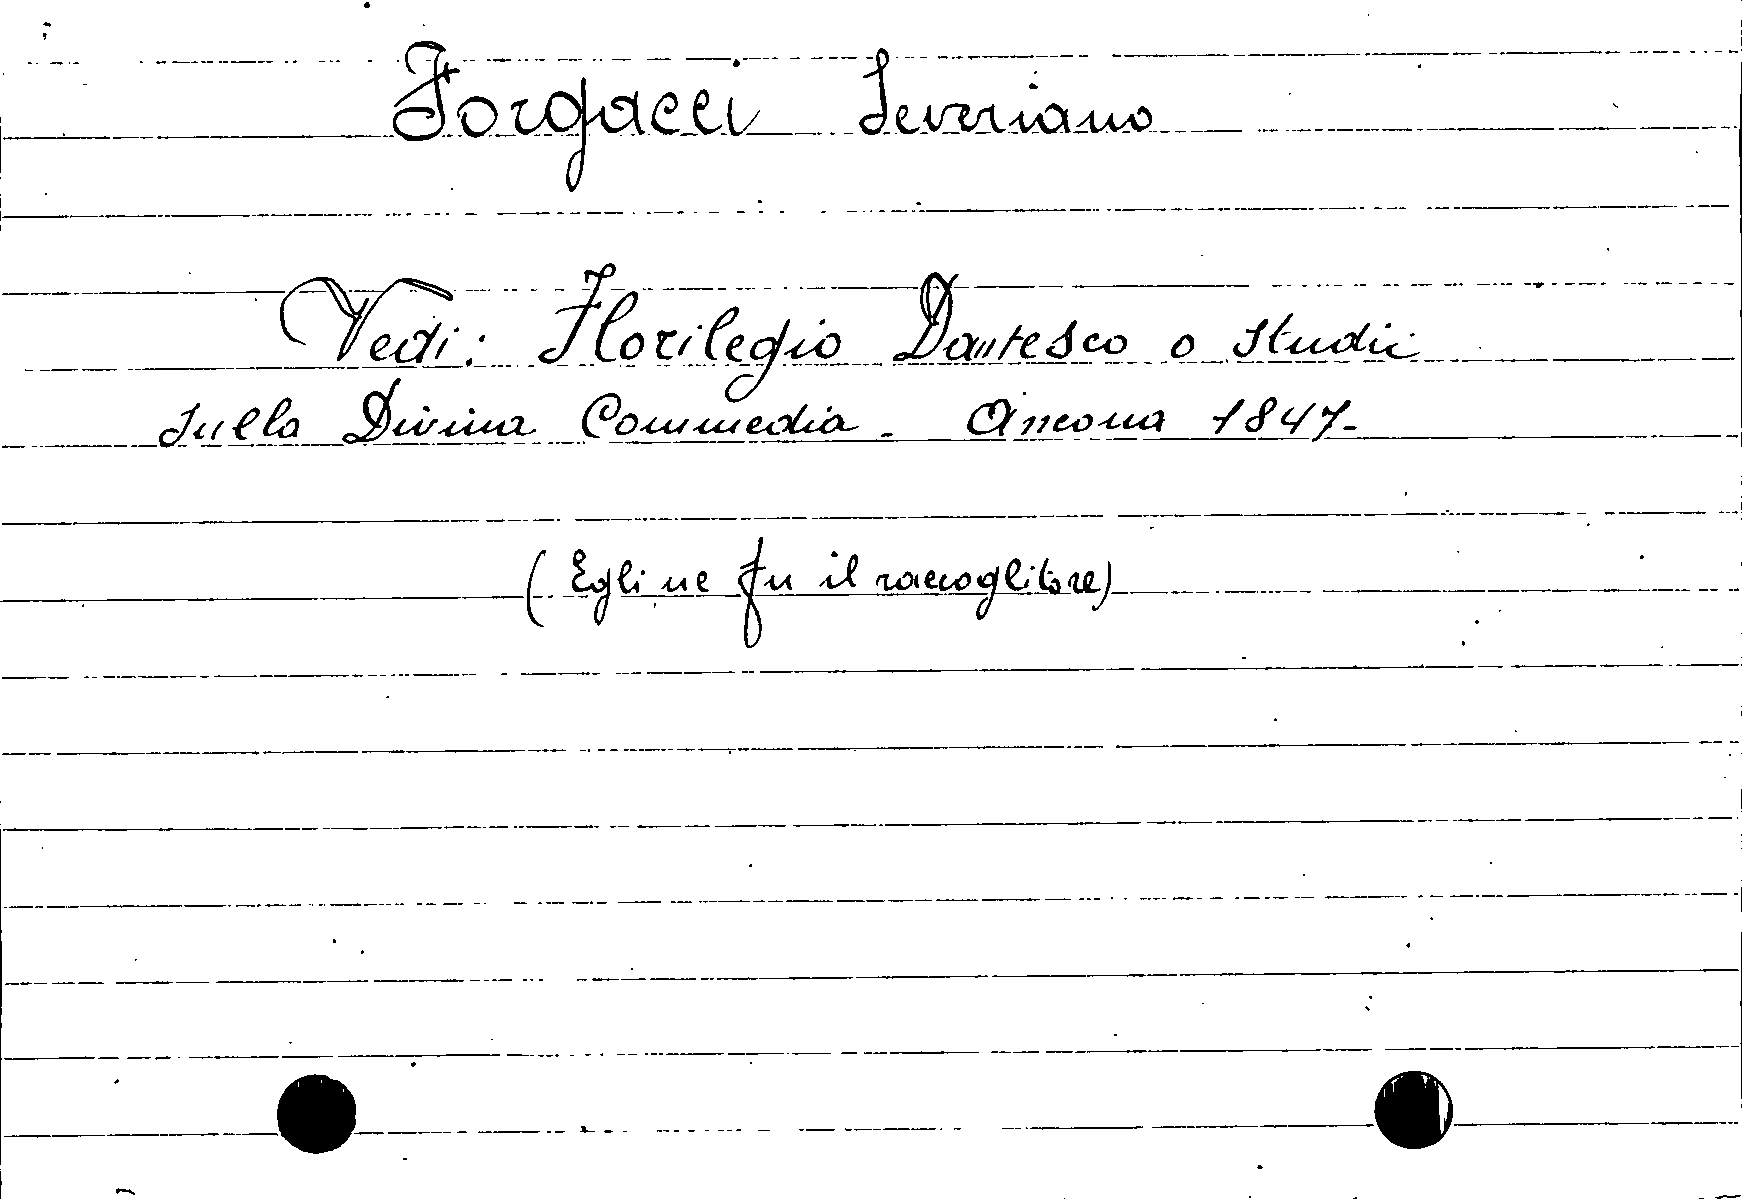 Forgacci Severiano
Vedi: Florilegio Dantesco o studii
sulla Divina Commedia - Ancona 1847-
(Egli ne fu il raccoglitore)